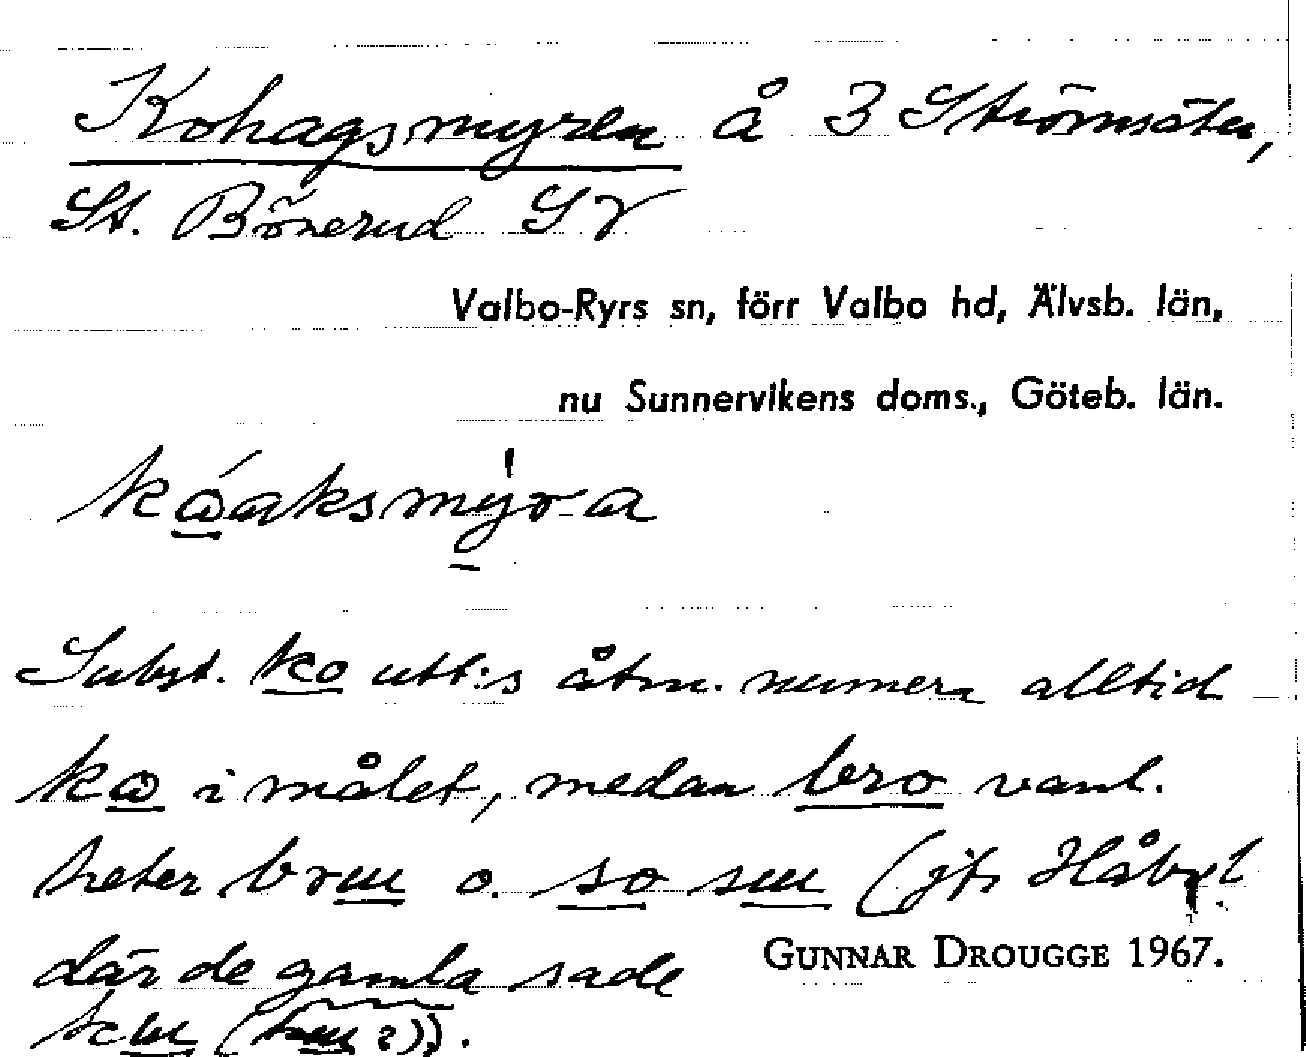 Kohagsmyren å 3 Strömsäter,
St. Bönerud SV
Valbo-Ryrs sn, förr Valbo hd, Älvsb. län,
nu Sunnervikens doms., Göteb. län.
Subst. ko utt:s åtm. numera alltid
i målet, medan bro vanl.
heter o. so (jfr Håbyl
där de gamla sade
GUNNAR DROUGGE 1967.